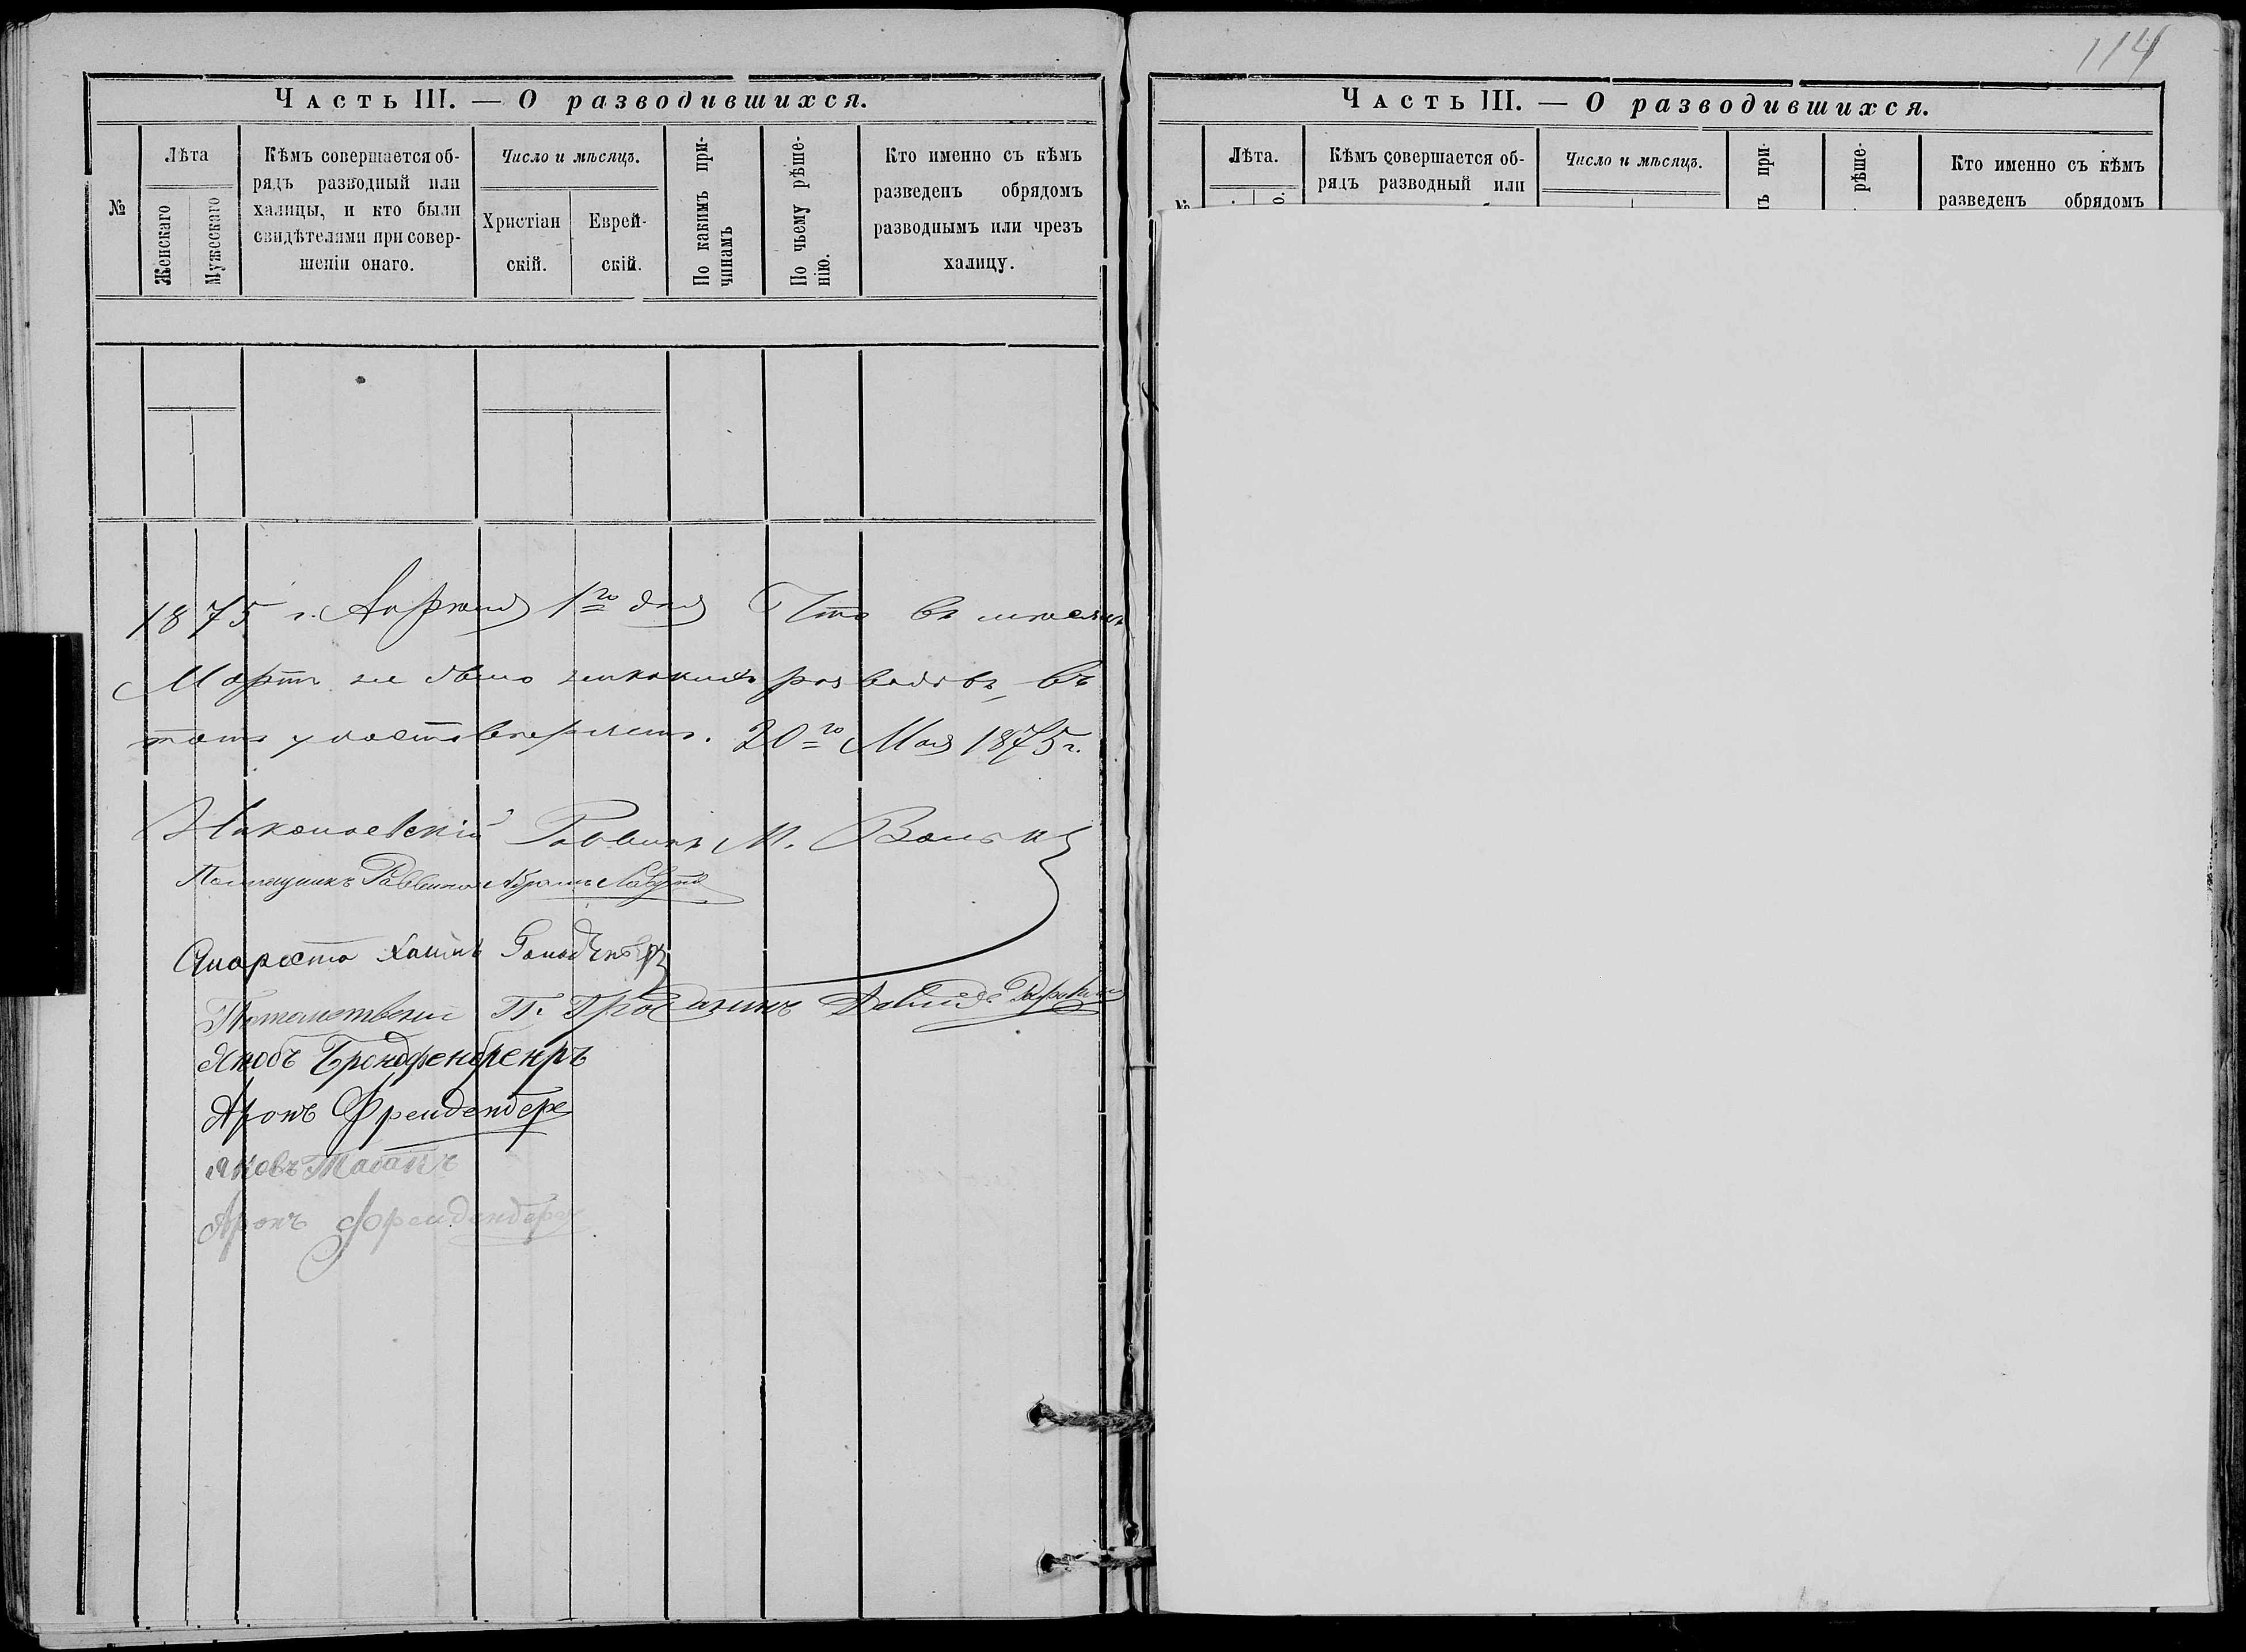 Часть III. — О разводившихся.
№
Лѣта
Женскаго
Мужескаго
Кѣмъ совершается об-
рядъ разводный или
халицы, и кто были
свидѣтелями при совер-
шеніи онаго.
Число и мѣсяцъ.
Христіан
скій.
Еврей-
скій.
По какимъ при-
чинамъ
По чьему рѣше-
нію.
Кто именно съ кѣмъ
разведенъ обрядомъ
разводнымъ или чрезъ
халицу.
1875 г. Апрѣля 1го дня Что въ мѣсяцѣ
Мартѣ не было никакихъ разводовъ, въ
томъ удостовѣряетъ. 20го Мая 1875 г.
Николаевскій Раввинъ М.
Помощникъ Раввина Абрамъ
Староста Хаимъ
Потомственный П. Гражданинъ Давидъ Рафалович
Яковъ
Аронъ Фрейденберг
Яковъ
Аронъ Фрейденберг
114
Часть III. — О разводившихся.
№
Лѣта.
Кѣмъ совершается об-
рядъ разводный или
Число и мѣсяцъ.
ъ при-
рѣше-
Кто именно съ кѣмъ
разведенъ обрядомъ